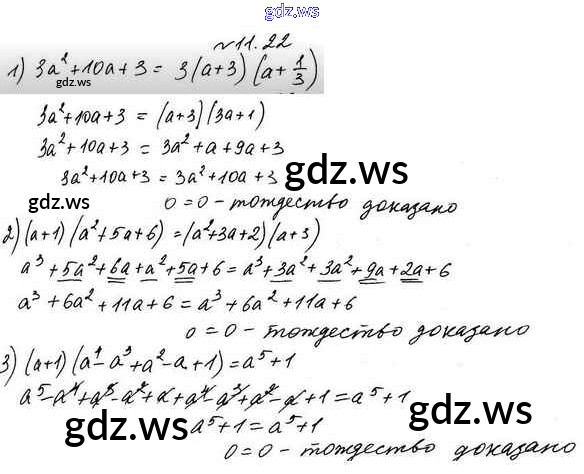 gdz.ws
№11.22
1) 3a²+10a+3 = 3(a+3)(a+1/3)
gdz.ws
3a²+10a+3 = (a+3)(3a+1)
3a²+10a+3 = 3a²+a+9a+3
gdz.ws
3a²+10a+3 = 3a²+10a+3
gdz.ws
0=0 - тождество доказано
2) (a+1)(a²+5a+6)=(a²+3a+2)(a+3)
a³+5a²+6a+a²+5a+6=a³+3a²+3a²+9a+2a+6
a³+6a²+11a+6=a³+6a²+11a+6
0=0 - тождество доказано
3) (a+1)(a⁴-a³+a²-a+1)=a⁵+1
a⁵-a⁴+a³-a²+a+a⁴-a³+a²-a+1=a⁵+1
gdz.ws
a⁵+1=a⁵+1
gdz.ws
0=0 - тождество доказано